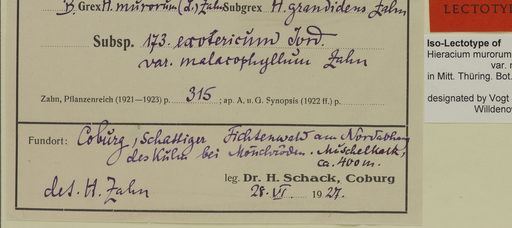 B. Grex H. murorum (L.) Zahn Subgrex H. grandidens Zahn
Subsp. 173. exotericum Jord.
var. malacophyllum Zahn
Zahn, Pflanzenreich (1921—1923) p. 315 ; ap. A. u. G. Synopsis (1922 ff.) p.
Fundort: Coburg, Schattiger Fichtenwald am Nordabhang
des Kulm bei Mönchröden. Muschelkalk,
ca. 400 m.
leg. Dr. H. Schack, Coburg
det. H. Zahn 28. VI. 1927.
LECTOTYP
Iso-Lectotype of
Hieracium murorum
var.
in Mitt. Thüring. Bot.
designated by Vogt